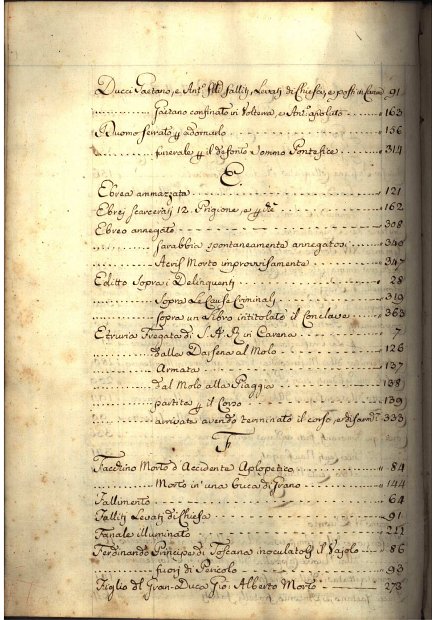 Ducci Gaetano, e Ant.o flli falliti, Levati di Chiesa, e posti in Carce 91
Gaetano confinato in Volterra, e Ant.o assoluto 163
Duomo serrato p adornarlo 156
funerale p il defonto Sommo Pontefice 314
E
Ebrea ammazzata 121
Ebrej scarcerati 12. Prigione, e 162
Ebreo annegato 308
Sarabbia spontaneamente annegatosi 340
Morto improvvisamente 347
Editto Sopra i Delinquenti 28
Sopra Le Cause Criminalj 319
sopra un Libro intitolato il Conclave 363
Etruria Fregata di S. A. R. in Carena 7
dalla Darsena al Molo 126
Armata 137
dal Molo alla Piaggia 138
partita p il Corso 139
arrivata avendo terminato il corso, e disarm.ta 333
F
Facchino Morto d'Accidente Aplopetico 84
Morto in una buca di Grano 144
Fallimento 64
Falliti Levati di Chiesa 91
Fanale illuminato 211
Ferdinando Principe di Toscana inoculatogli il Vajolo 86
fuori di Pericolo 93
Figlio del Gran-Duca Gio: Alberto Morto 273